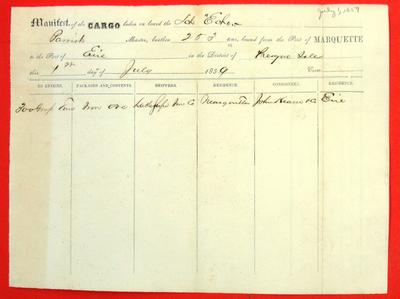 July 1, 1859
Manifest of the CARGO laden on board the Sch Echo
Parrish Master, burthen 253 tons, bound from the Port of MARQUETTE
to the Port of Erie in the District of Presque Isle
this 1st day of July 1859
NO. ENTRIES. PACKAGES AND CONTENTS. SHIPPERS. RESIDENCE. CONSIGNEES. RESIDENCE.
300 Gross Tons Iron Ore Marquette John Hearn & Co Erie